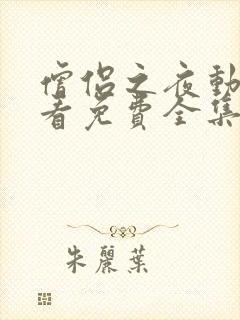 僧侣之夜動
看免費全集
朱麗葉